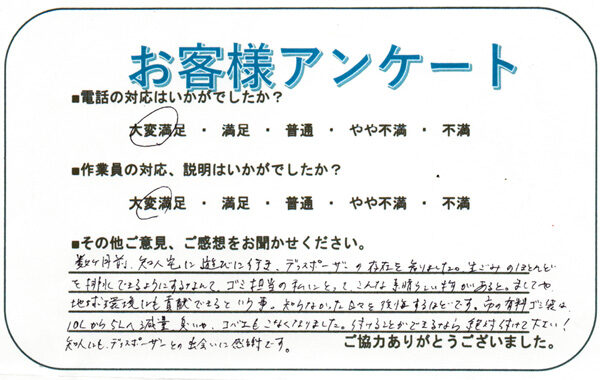 お客様アンケート
■電話の対応はいかがでしたか？
大変満足 ・ 満足 ・ 普通 ・ やや不満 ・ 不満
■作業員の対応、説明はいかがでしたか？
大変満足 ・ 満足 ・ 普通 ・ やや不満 ・ 不満
■その他ご意見、ご感想をお聞かせください。
数ヶ月前、知人宅に遊びに行き、ディスポーザーの存在を知りました。生ごみのほとんど
を排水できるようにするなんて、ゴミ担当の私にとってこんな素晴らしい物があると。ましてや
地球環境にも貢献できるという事。知らなかった日々を後悔するほどです。市の有料ゴミ袋は
10Lから5Lへ減量 臭いや、コバエもこなくなりました。付けることができるなら絶対付けて下さい！
知人にも、ディスポーザーとの出会いに感謝です。
ご協力ありがとうございました。